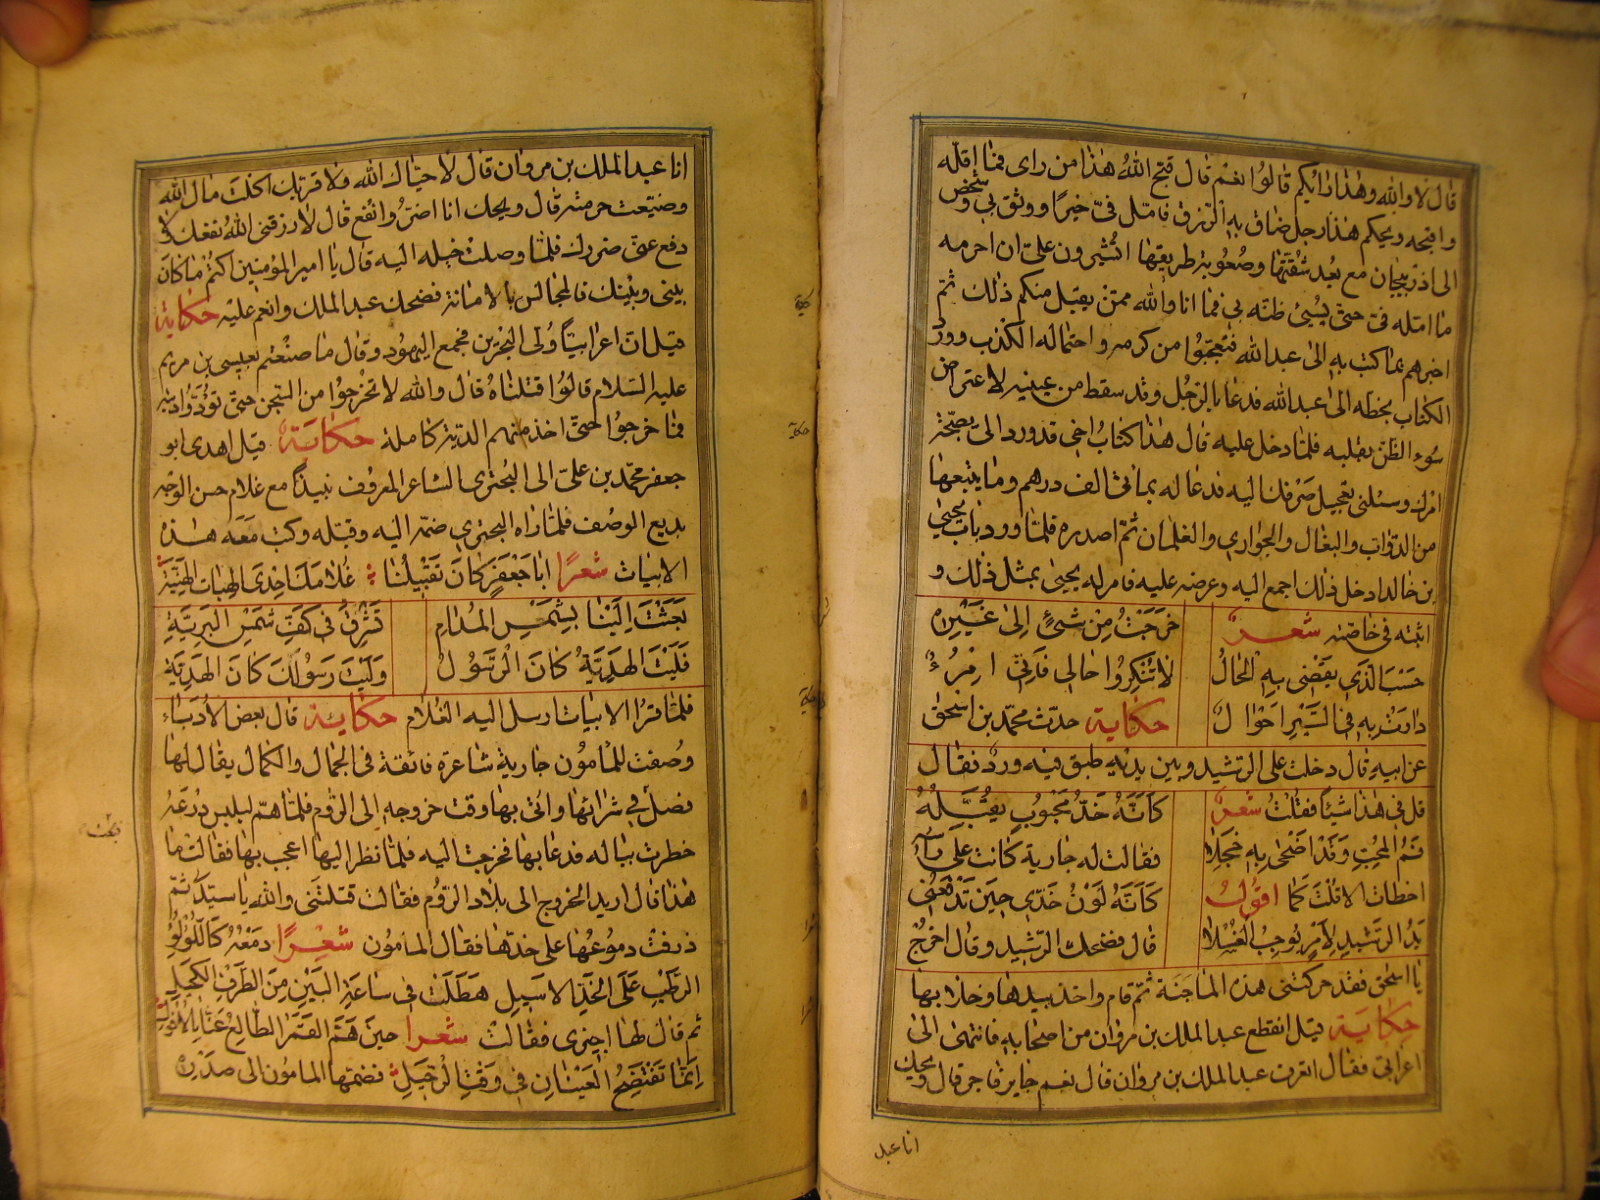 قال لا والله وهذا رايكم قالوا نعم قال قبح الله هذا من راى فما اقله
واقبحه ويحكم هذا رجل ضاق به الرزق فامل فى خيرا ووثق بى وشخص
الى اذربيجان مع بعد شقتها وصعوبة طريقها اتشيرون على ان احرمه
ما امله فى حتى يسيئ ظنه بى فما انا والله ممن يقبل منكم ذلك ثم
اخبرهم بما كتب به الى عبد الله فتعجبوا من كرمه واحتماله الكذب وورد
الكتاب بخطه الى عبد الله فدعا بالرجل وقد سقط من عينيه لاعتراض
سوء الظن بقلبه فلما دخل عليه قال هذا كتاب اخى قد ورد الى بصحة
امرك وسئلنى تعجيل صرفك اليه فدعا له بمائتى الف درهم وما يتبعها
من الدواب والبغال والجوارى والغلمان ثم اصدره فلما ورد باب يحيى
بن خالد ادخل ذلك اجمع اليه وعرضه عليه فامر له يحيى بمثل ذلك و
اثبته فى خاصته شعر خرجت من شئ الى غيره
حسب الذى يقضى به الحال لا تنكروا حالى فانى امرؤ
دارت به فى السير احوال حكاية حدث محمد بن اسحق
عن ابيه قال دخلت على الرشيد وبين يديه طبق فيه ورد فقال
قل فى هذا شيئا فقلت شعر كانه خد محبوب يقبله
فم المحب وقد اضحى به خجلا فقالت له جارية كانت على راسه
اخطات الا قلت كما اقول كانه لون خدى حين تدفعنى
يد الرشيد لامر يوجب الغسلا قال فضحك الرشيد وقال اخرج
يا اسحق فقد حركتنى هذه الماجنة ثم قام واخذ بيدها وخلا بها
حكاية قيل انقطع عبد الملك بن مروان من اصحابه فانتهى الى
اعرابى فقال اتعرف عبد الملك بن مروان قال نعم جاير فاجر قال ويحك
انا عبد
انا عبد الملك بن مروان قال لا حياك الله ولا قربك اكلت مال الله
وضيعت حرمته قال ويحك انا اضر وانفع قال لا رزقنى الله نفعك ولا
دفع عنى ضررك فلما وصلت خيله اليه قال يا امير المؤمنين اكتم ما كان
بينى وبينك فالمجالس بالامانة فضحك عبد الملك وانعم عليه حكاية
قيل ان اعرابيا ولى البحرين فجمع اليهود وقال ما صنعتم بعيسى بن مريم
عليه السلام قالوا قتلناه قال والله لا تخرجوا من السجن حتى تؤدوا ديته
فما خرجوا حتى اخذ منهم الدية كاملة حكاية قيل اهدى ابو
جعفر محمد بن على الى البحترى الشاعر المعروف نبيذا مع غلام حسن الوجه
بديع الوصف فلما راه البحترى ضمه اليه وقبله وكتب معه هذه
الابيات شعرا ابا جعفر كان تقبيلنا غلامك احدى الهبات الهنية
بعثت الينا بشمس المدام تشرف فى كف شمس البرية
فليت الهدية كان الرسول وليت رسولك كان الهدية
فلما قرا الابيات ارسل اليه الغلام حكاية قال بعض الادباء
وصفت للمامون جارية شاعرة فائقة فى الجمال والكمال يقال لها
فضل فى شرائها واتى بها وقت خروجه الى الروم فلما هم ليلبس درعه
خطرت بباله فدعا بها فخرجت اليه فلما نظر اليها اعجب بها فقالت ما
هذا قال اريد الخروج الى بلاد الروم فقالت قتلتنى والله يا سيدى ثم
ذرفت دموعها على خدها فقال المامون شعرا دمعه كاللؤلؤ
الرطب على الخد الاسيل هطلت فى ساعة البين من الطرف الكحيل
ثم قال لها اجيزى فقالت شعرا حين هم القمر الطالع عنا بالافول
انما تفتضح العينان فى وقت الرحيل فضمها المامون الى صدره